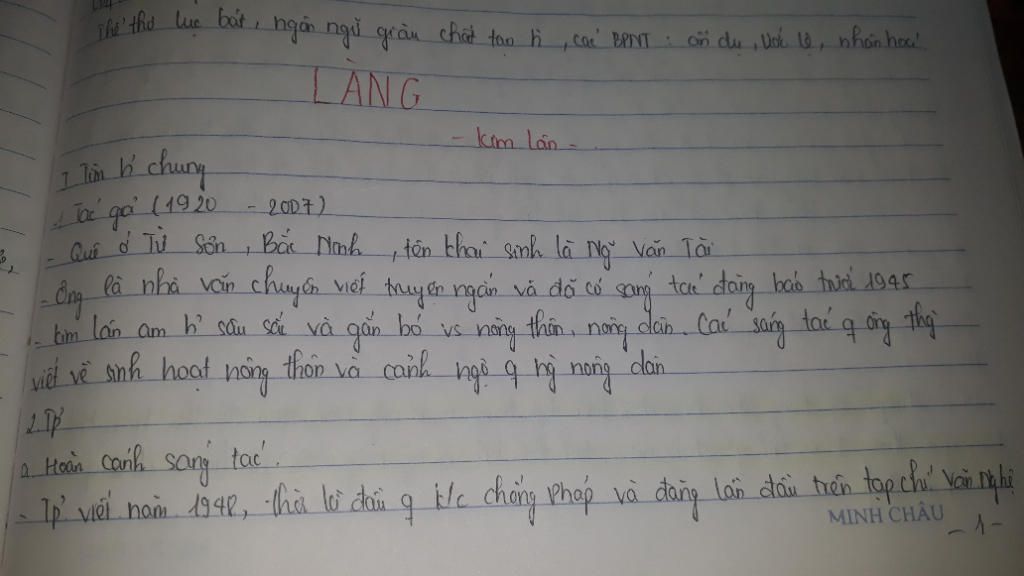 Thể thơ lục bát, ngôn ngữ giàu chất tạo h̀, các BPNT: ẩn dụ, ước lệ, nhân hoá
LÀNG
- Kim Lân -
I Tìm h' chung
1. Tác gả (1920 - 2007)
- Quê ở Từ Sơn, Bắc Ninh, tên khai sinh là Ng~ Văn Tài
- Ông là nhà văn chuyên viết truyện ngắn và đã có sáng tác đăng báo trước 1945
- Kim Lân am h' sâu sắc và gắn bó vs nông thôn, nông dân. Các sáng tác q ông thg
viết về sinh hoạt nông thôn và cảnh ngộ q ng` nông dân
2. TP'
a. Hoàn cảnh sáng tác.
- TP' viết năm 1948, thời kì đầu q k/c chống Pháp và đăng lần đầu trên tạp chí Văn Nghệ
MINH CHÂU
- 1 -